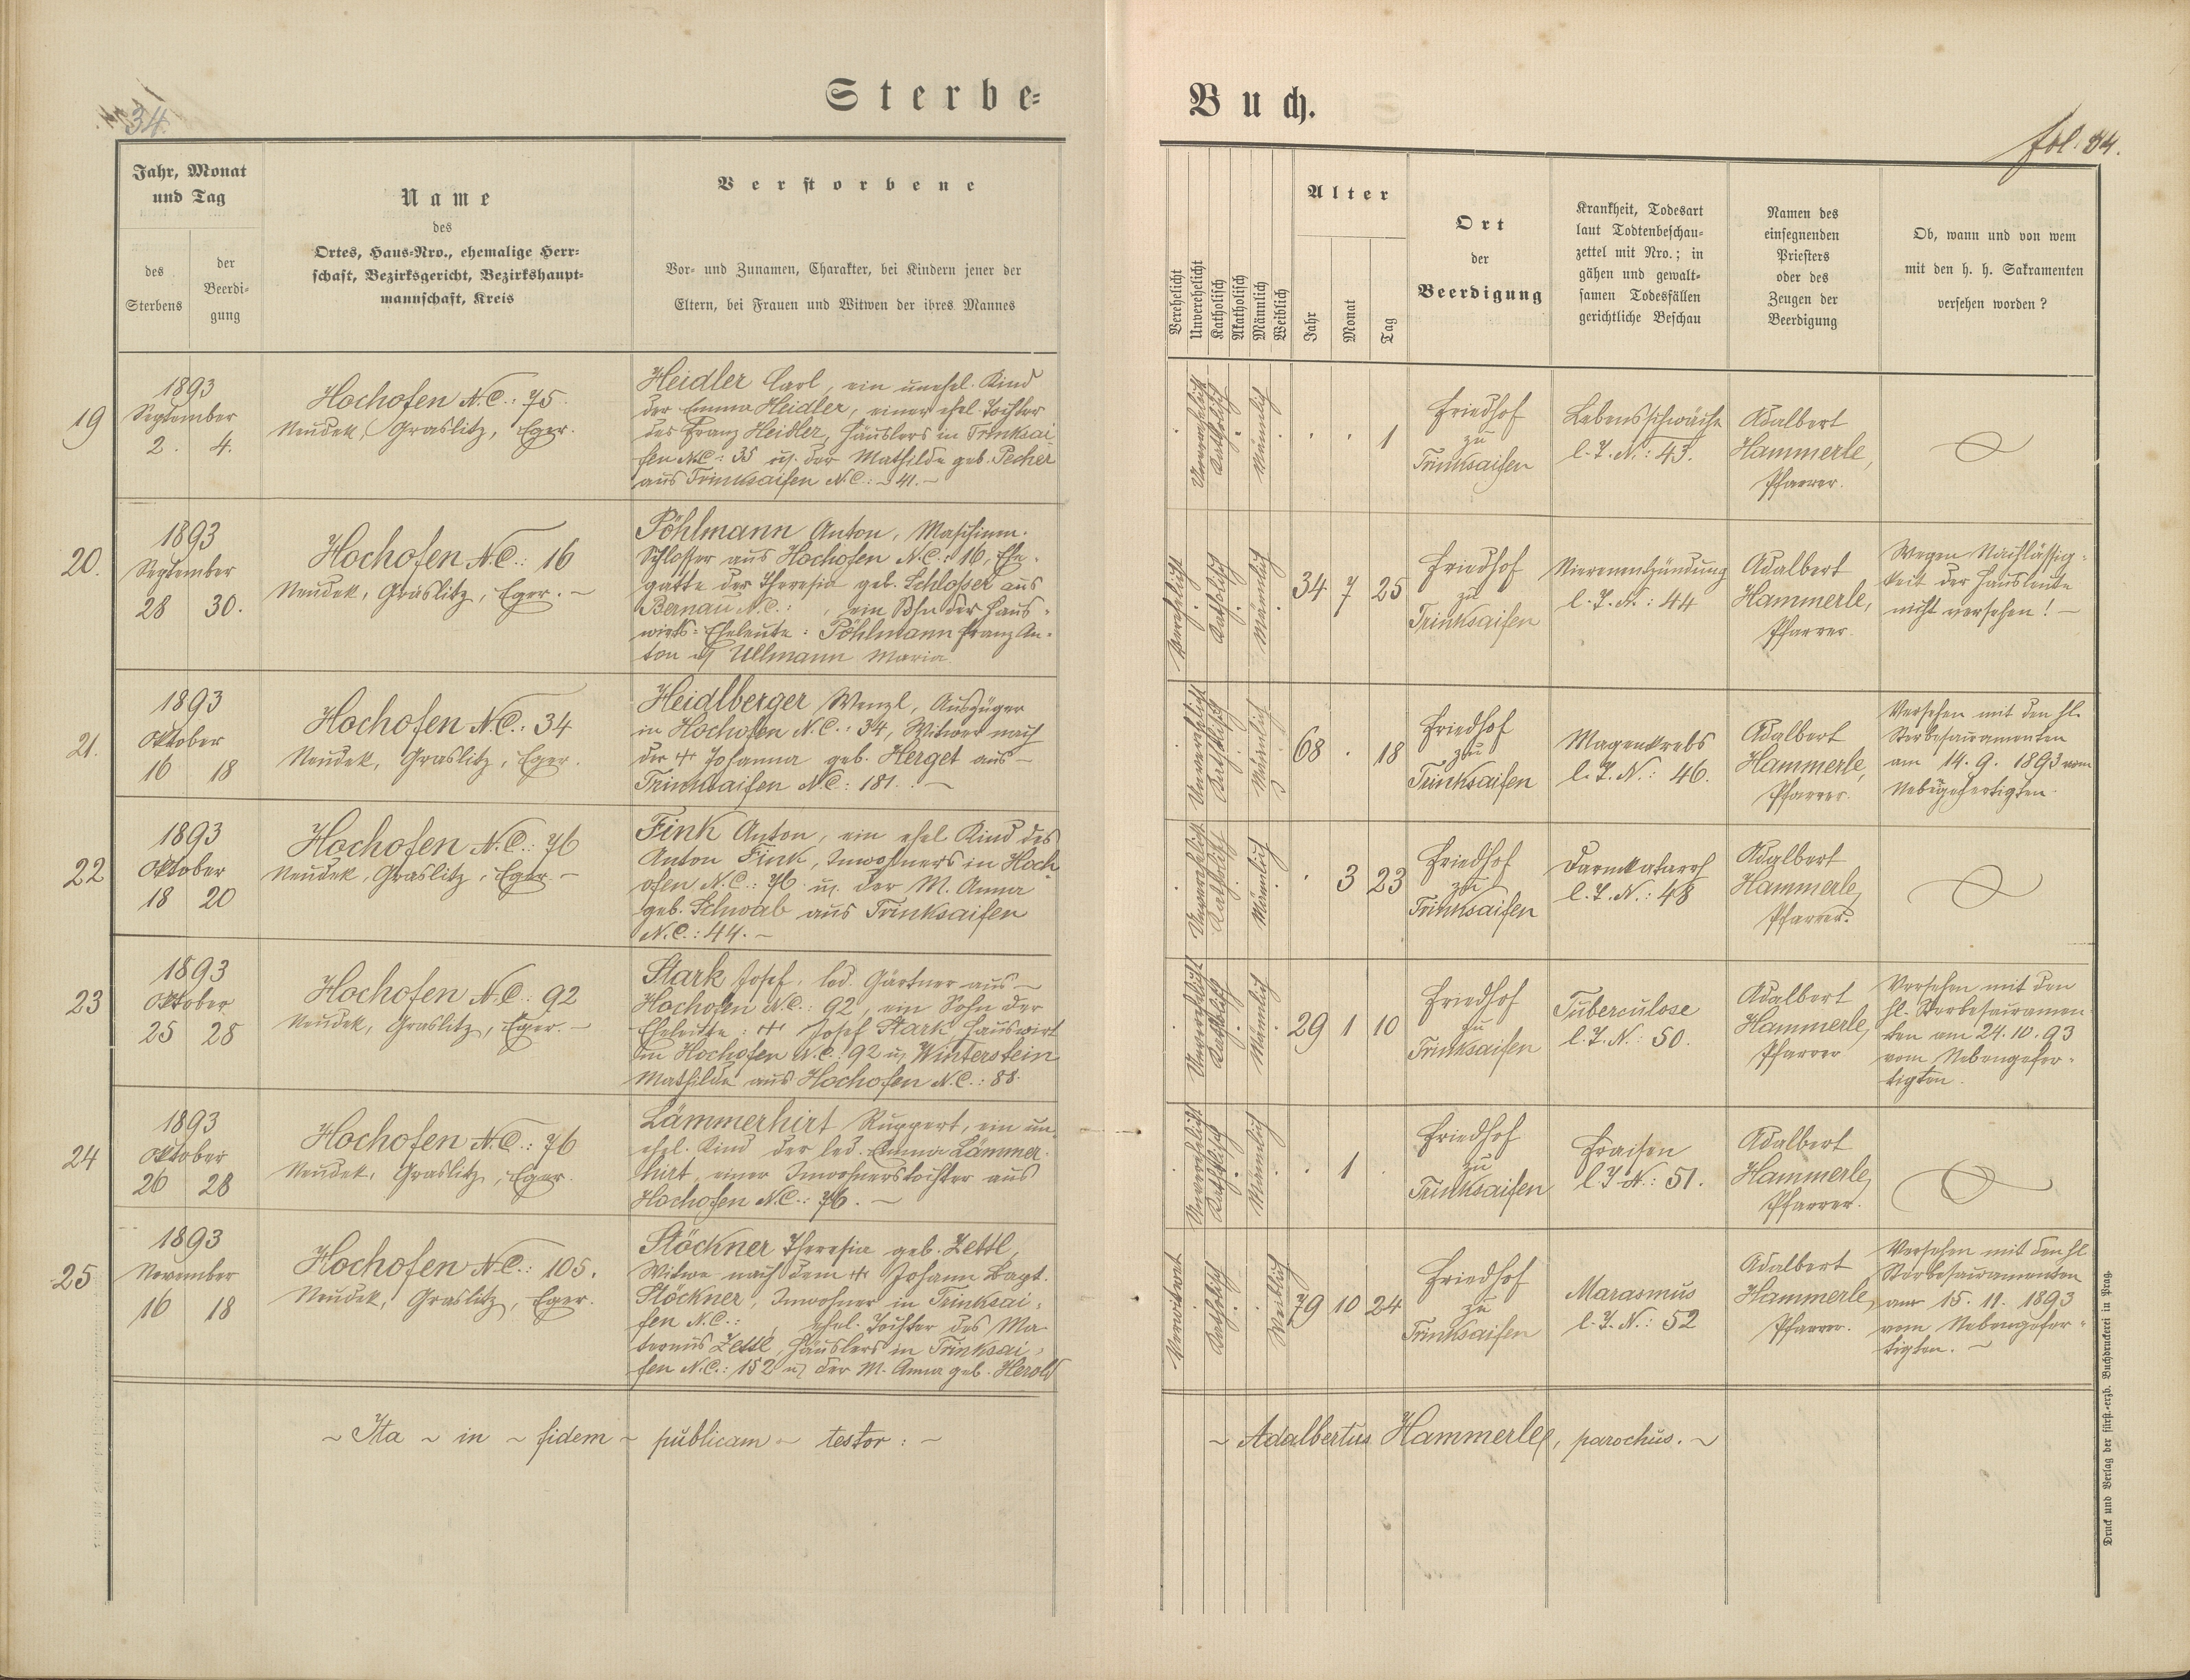 34.
Sterbe-
Buch.
fol. 34.
Jahr, Monat
und Tag
des
Sterbens
der
Beerdi-
gung
Name
des
Ortes, Haus-Nro., ehemalige Herr-
schaft, Bezirksgericht, Bezirkshaupt-
mannschaft, Kreis
Verstorbene
Vor- und Zunamen, Charakter, bei Kindern jener der
Eltern, bei Frauen und Witwen der ihres Mannes
Verehelicht
Unverehelicht
Katholisch
Akatholisch
Männlich
Weiblich
Alter
Jahr
Monat
Tag
Ort
der
Beerdigung
Krankheit, Todesart
laut Todtenbeschau-
zettel mit Nro.; in
gähen und gewalt-
samen Todesfällen
gerichtliche Beschau
Namen des
einsegnenden
Priesters
oder des
Zeugen der
Beerdigung
Ob, wann und von wem
mit den h. h. Sakramenten
versehen worden?
19
1893
September
2. 4.
Hochofen N.C.: 75.
Neudek, Graslitz, Eger.
Heidler Carl, ein unehel. Kind
der Emma Heidler, einer ehel. Tochter
des Franz Heidler, Häuslers in Trinksai-
fen N.C.: 35 u. der Mathilde geb. Pecher
aus Trinksaifen N.C.: 41.
Unverehelicht
Katholisch
Männlich
1
Friedhof
zu
Trinksaifen
Lebensschwäche
l. T. N.: 43.
Adalbert
Hammerle,
Pfarrer.
20.
1893
September
28 30.
Hochofen N.C.: 16
Neudek, Graslitz, Eger.
Pöhlmann Anton, Maschinen-
Schlosser aus Hochofen N.C.: 16, Ehe-
gatte der Theresia geb. Schlosser aus
Bernau N.C.: , ein Sohn der Haus-
wirts-Eheleute: Pöhlmann Franz An-
ton u. Ullmann Maria.
Verehelicht
Katholisch
Männlich
34 7 25
Friedhof
zu
Trinksaifen
Nierenentzündung
l. T. N.: 44
Adalbert
Hammerle,
Pfarrer.
Wegen Nachlässig-
keit der Hausleute
nicht versehen!
21.
1893
Oktober
16 18
Hochofen N.C.: 34
Neudek, Graslitz, Eger.
Heidlberger Wenzl, Auszüger
in Hochofen N.C.: 34, Witwer nach
der + Johanna geb. Herget aus
Trinksaifen N.C.: 181.
Unverehelicht
Katholisch
Männlich
68 . 18
Friedhof
zu
Trinksaifen
Magenkrebs
l. T. N.: 46.
Adalbert
Hammerle,
Pfarrer.
Versehen mit den hl.
Sterbesacramenten
am 14. 9. 1893 vom
Nebengefertigten.
22
1893
Oktober
18 20
Hochofen N.C.: 76
Neudek, Graslitz, Eger.
Fink Anton, ein ehel. Kind des
Anton Fink, Inwohners in Hoch-
ofen N.C.: 76 u. der M. Anna
geb. Schwab aus Trinksaifen
N.C.: 44.
Unverehelicht
Katholisch
Männlich
. 3 23
Friedhof
zu
Trinksaifen
Darmkatarrh
l. T. N.: 48
Adalbert
Hammerle,
Pfarrer.
23
1893
Oktober
25 28
Hochofen N.C.: 92
Neudek, Graslitz, Eger.
Stark Josef, led. Gärtner aus
Hochofen N.C.: 92, ein Sohn der
Eheleute: + Josef Stark Hauswirt
in Hochofen N.C.: 92 u. Winterstein
Mathilde aus Hochofen N.C.: 88.
Unverehelicht
Katholisch
Männlich
29 1 10
Friedhof
zu
Trinksaifen
Tuberculose
l. T. N.: 50.
Adalbert
Hammerle,
Pfarrer
Versehen mit den
hl. Sterbesacramen-
ten am 24. 10. 93
vom Nebengefer-
tigten.
24
1893
Oktober
26 28
Hochofen N.C.: 76
Neudek, Graslitz, Eger.
Lämmerhirt Ruppert, ein un-
ehel. Kind der led. Emma Lämmer-
hirt, einer Inwohnerstochter aus
Hochofen N.C.: 76.
Unverehelicht
Katholisch
Männlich
. 1 .
Friedhof
zu
Trinksaifen
Fraisen
l. T. N.: 51.
Adalbert
Hammerle,
Pfarrer.
25
1893
November
16 18
Hochofen N.C.: 105.
Neudek, Graslitz, Eger.
Stöckner Theresia geb. Zettl,
Witwe nach dem + Johann Bapt.
Stöckner, Inwohner in Trinksai-
fen N.C.: , ehel. Tochter des Ma-
ternus Zettl, Häuslers in Trinksai-
fen N.C.: 152 u. der M. Anna geb. Herold
Verwitwet
Katholisch
Weiblich
79 10 24
Friedhof
zu
Trinksaifen
Marasmus
l. T. N.: 52
Adalbert
Hammerle,
Pfarrer.
Versehen mit den hl.
Sterbesacramenten
am 15. 11. 1893
vom Nebengefer-
tigten.
~ Ita ~ in ~ fidem ~ publicam ~ testor: ~
~ Adalbertus Hammerle, parochus. ~
Druck und Verlag der fürst.-erzb. Buchdruckerei in Prag.